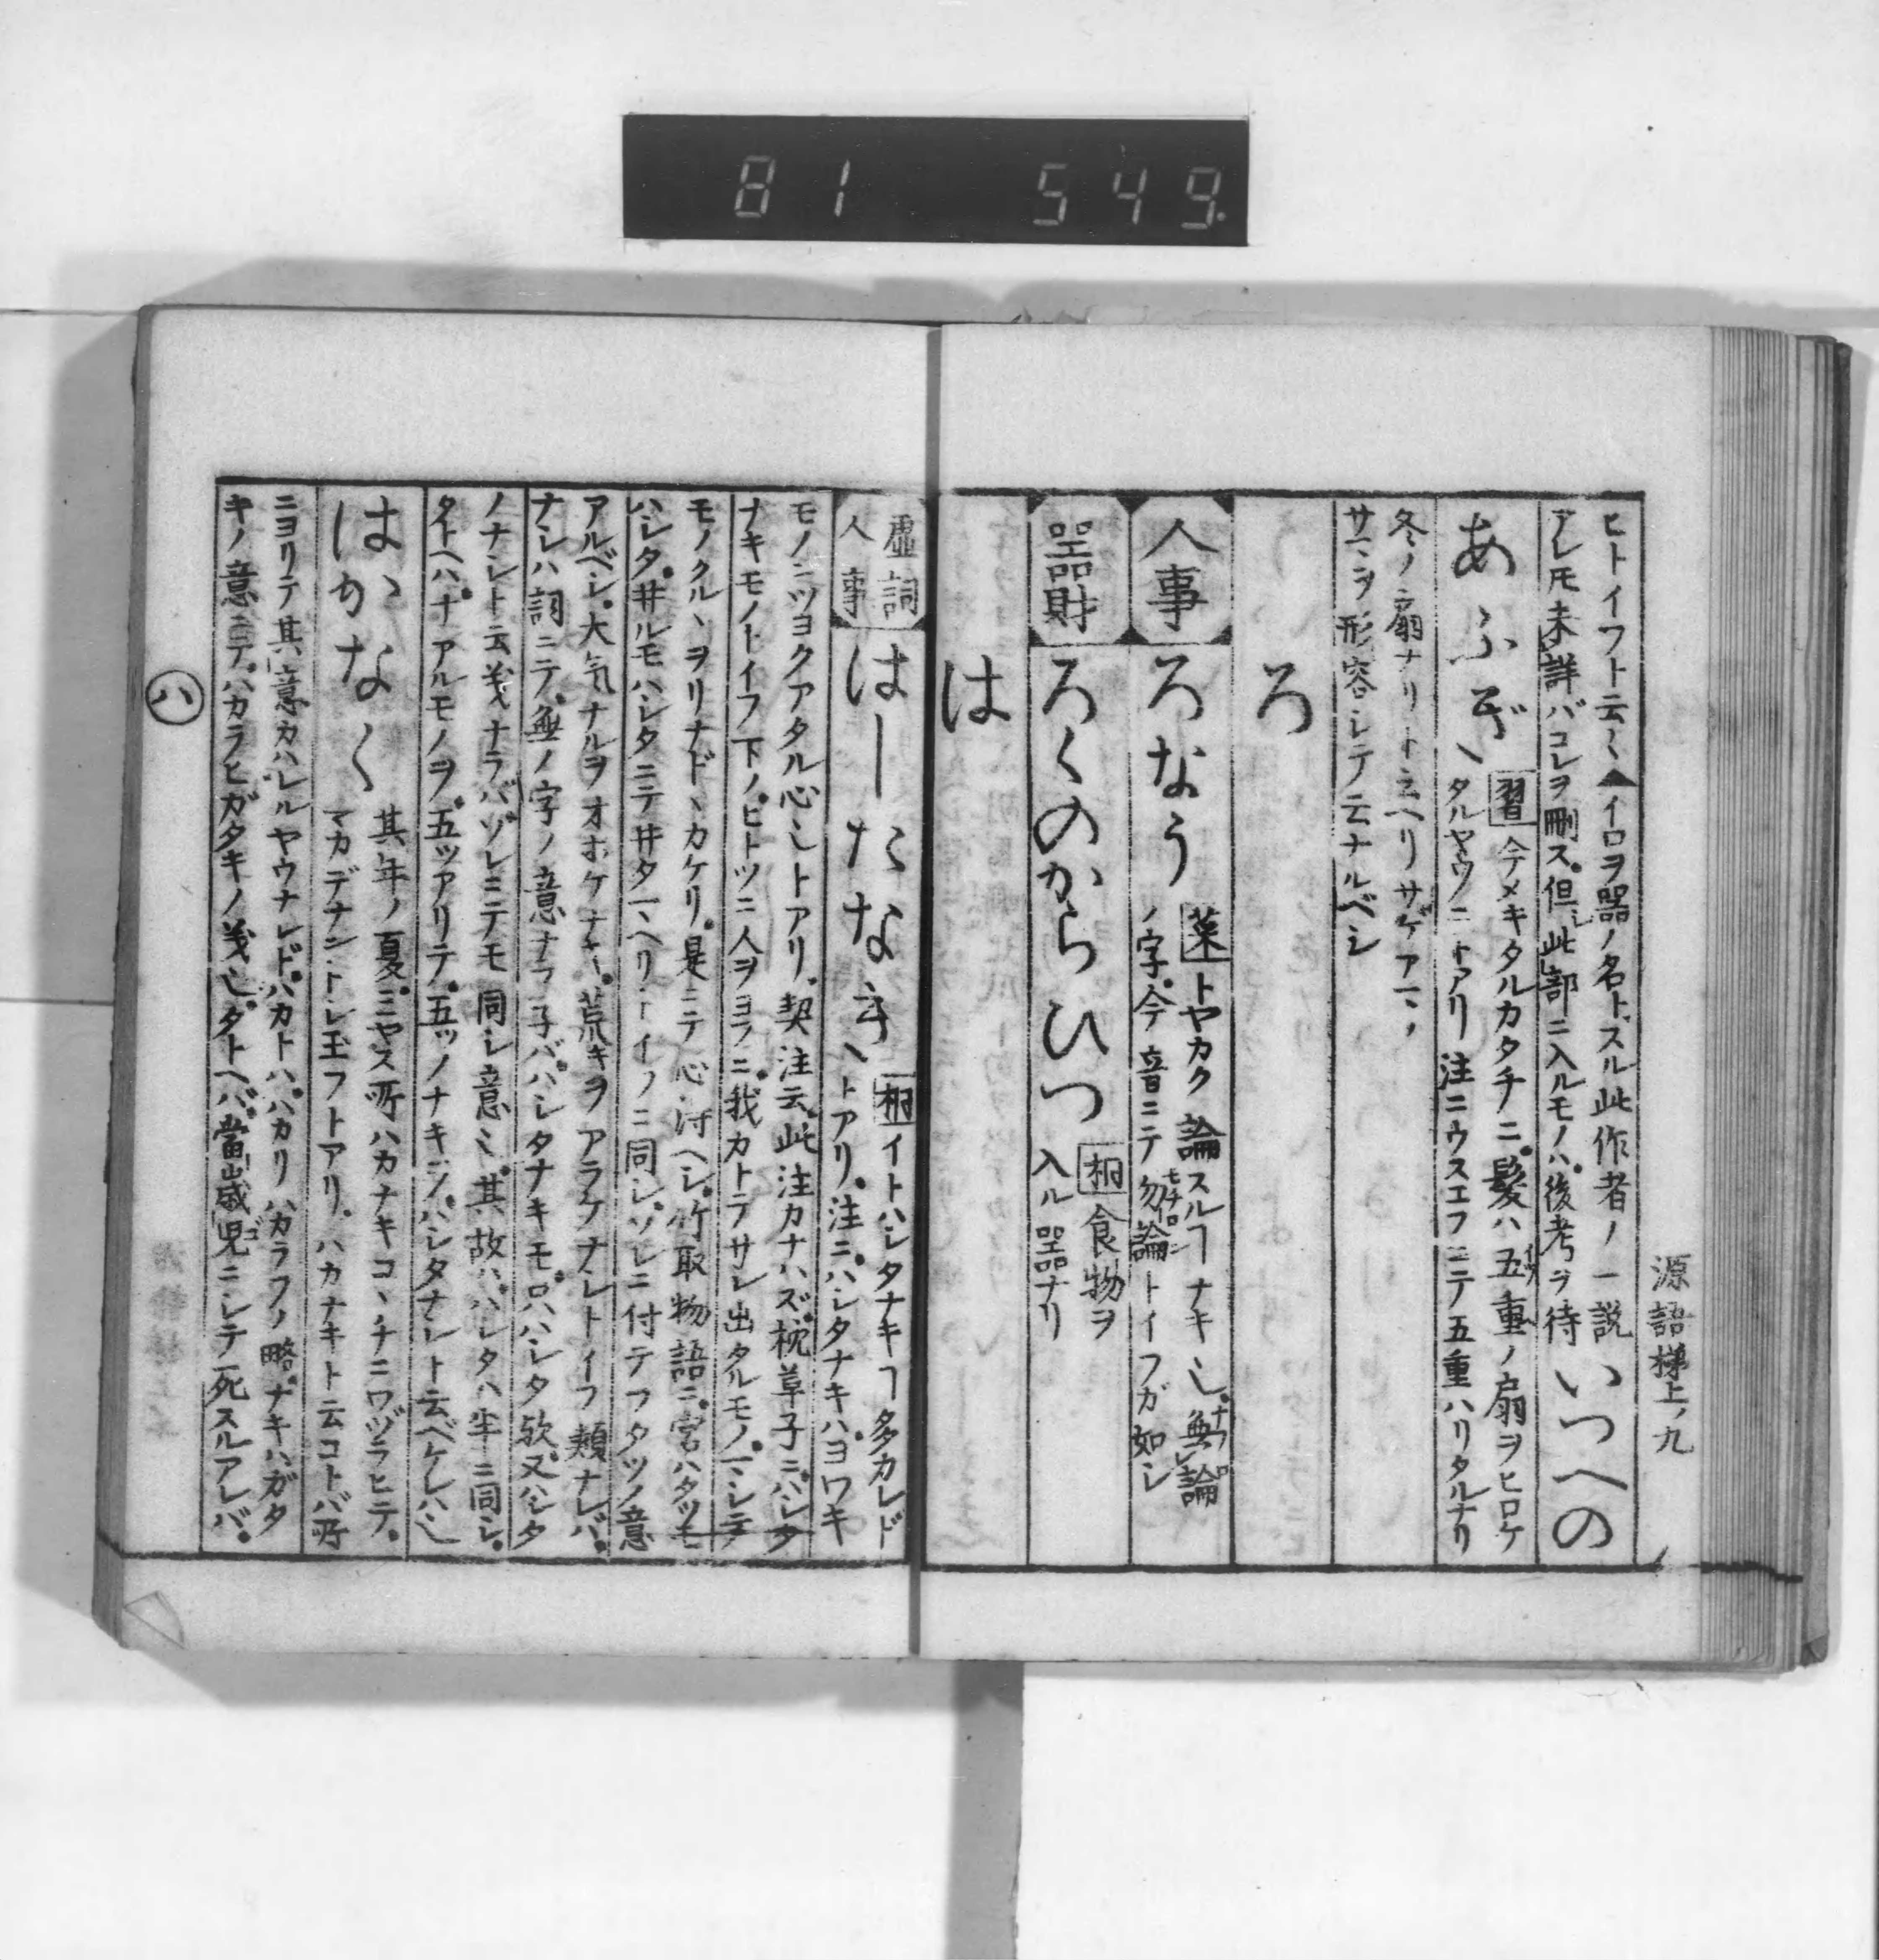 81 549
源語梯上ノ九
ヒトイフト云〱▲イロヲ器ノ名トスル此作者ノ一説
アレ𪜈未詳バコレヲ刪ス。但シ此部ニ入ルモノハ。後考ヲ待
いつへの
あふぎ、
習今メキタルカタチニ。髪ハ五重ノ扇ヲヒロケ
タルヤウニトアリ注ニウスエフニテ五重ハリタルナリ
冬ノ扇ナリト云ヘリサゲアマノ
サマヲ形容シテ云ナルベシ
ろ
人事
ろなう
菜トヤカク論スルヿナキ也。無論
ノ字。今音ニテ勿論トイフガ如シ
器財
ろくのからひつ
桐食物ヲ
入ル器ナリ
は
虚詞
人事
はしたなき、
桐イトハシタナキヿ多カレド
トアリ。注ニ。ハシタナキハ。ヨワキ
モノニツヨクアタル心也トアリ。契注云。此注カナハズ。枕草子ニ。ハシタ
ナキモノトイフ下ノ。ヒトツニ人ヲヨフニ。我カトテサシ出タルモノ。マシテ
モノクルヽヲリナドヽカケリ。是ニテ心ヲ付ヘシ。竹取物語ニ。宮ハタツモ
ハシタ。井ルモハシタニテ井タマヘリトイフニ同シ。ソレニ付テフタツノ意
アルベシ。大気ナルヲオホケナキ。荒キヲアラケナシトイフ類ナレバ。
ナシハ詞ニテ。無ノ字ノ意ナラ子バ。ハシタナキモ。只ハシタ欤。又ハシタ
ノナシト云義ナラバ。ソレニテモ同シ意也。其故ハ。ハシタハ半ニ同シ。
タトヘハ。ナアルモノヲ。五ツアリテ。五ツノナキヲ。ハシタナシト云ベケレハ也
はかなく
其年ノ夏。ミヤス所ハカナキコヽチニワヅラヒテ。
マカデナントシ玉フトアリ。ハカナキト云コトバ所
ニヨリテ其意カハレルヤウナレド。ハカトハ。ハカリハカラフノ略。ナキハガタ
キノ意ニテ。ハカラヒガタキノ義也。タトヘバ。當歳児ニシテ死スルアレバ。
ハ